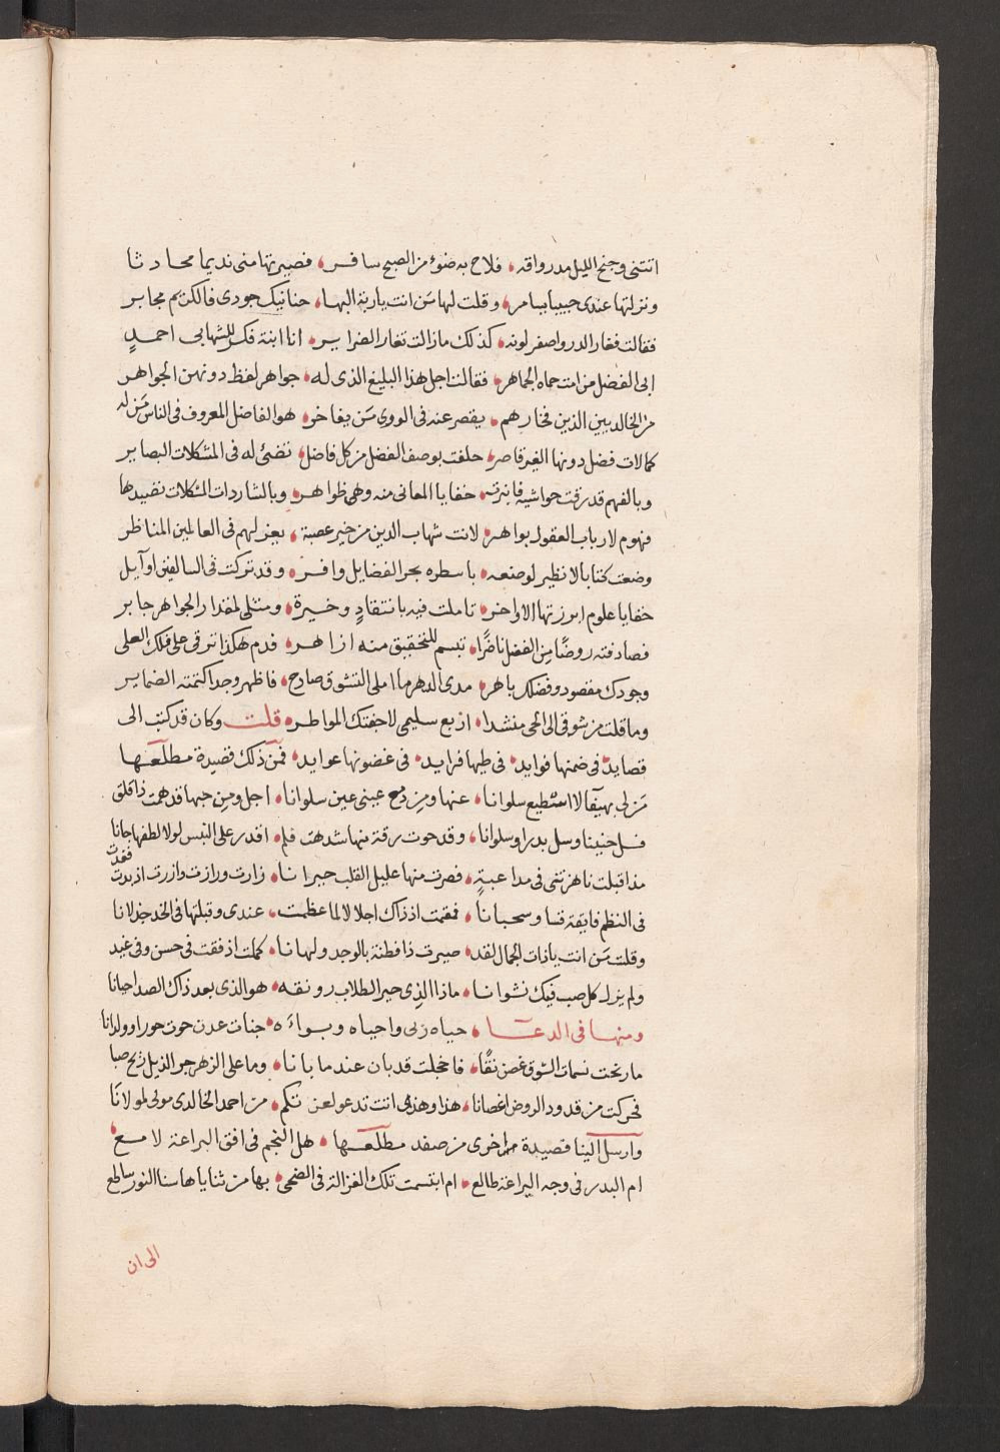 اتتنى وجنح الليل مد رواقه فلاح به ضوء من الصبح سافر فصيرتها منى نديما محادثا
ونزلتها عندى حبيبا يسامر وقلت لها من انت ياربة البها حنانيك جودى فالكريم مجابر
فقالت فغار الدر واصفر لونه كذلك مازالت تغار الضراير انا ابنة فكر للشهابى احمد
ابى الفضل من امت حماه الجماهر فقالت اجل هذا البليغ الذى له جواهر لفظ دونهن الجواهر
من الخالديين الذين فخارهم يقصر عنه فى الورى من يفاخر هو الفاضل المعروف فى الناس من له
كمالات فضل دونها الغير قاصر حلفت بوصف الفضل من كل فاضل تضئ له فى المشكلات البصاير
وبالفهم قد رقت حواشيه فانبرت خفايا المعانى منه وهى ظواهر وبالشاردات المشكلات تصيدها
فهوم لارباب العقول بواهر لانت شهاب الدين من خير عصبة يعز لهم فى العالمين المناظر
وضعت كتابا لا نظير لوضعه باسطره بحر الفضايل وافر وقد تركت فى السالفين اوآيل
خفايا علوم ابرزتها الاواخر تاملت فيه بانتقاد وخبرة ومثلى لمقدار الجواهر جابر
فصادفته روضا من الفضل ناضرا تبسم للتحقيق منه ازاهر فدم هكذا ترقى على فلك العلى
وجودك مقصود وفضلك باهر مدى الدهر ما املى التشوق صادح فاظهر وجدا كتمته الضماير
وما قلت من شوقى الى الحى منشدا اربع سليمى لاجفتك المواطر قلت وكان قد كتب الى
قصايد فى ضمنها فوايد فى طيها فرايد فى غضونها عوايد فمن ذلك قصيدة مطلعها
من لى بهيفا لا استطيع سلوانا عنها ومن دمع عينى عين سلوانا اجل ومن حبها قد همت ذا قلق
فسل حنينا وسل بدرا وسلوانا وقد حوت رقة منها شدهت فلم اقدر على النبس لولا لطفها جانا
مذ اقبلت ناهز تثنى فى مداعبة فصرت منها عليل القلب حيرانا زارت ورازت وازرت اذ بدت فغدت
فى النظم فايقة قسا وسحبانا فقمت اذ ذاك اجلالا لما عظمت عندى وقبلتها فى الخد جذلانا
وقلت من انت ياذات الجمال لقد صيرت ذا فطنة بالوجد ولهانا كملت اذ فقت فى حسن وفى غيد
ولم يزل كل صب فيك نشوانا ماذا الذى حير الطلاب رونقه هو الذى بعد ذاك الصد احيانا
ومنها فى الدعا حياه ربى واحياه وبواءه جنات عدن حوت حورا وولدانا
ما رنحت نسمات الشوق غصن نقا فاخجلت قد بان عند ما بانا وما على الزهر جر الذيل ريح صبا
فحركت من قدود الروض اغصانا هذا وهذى انت تدعو لعزتكم من احمد الخالدى مولى لمولانا
وارسل الينا قصيدة اخرى من صفد مطلعها هل النجم فى افق البراعة لامع
ام البدر فى وجه اليراعة طالع ام ابتسمت تلك الغزالة فى الضحى بها من ثناياها سنا النور ساطع
الى ان